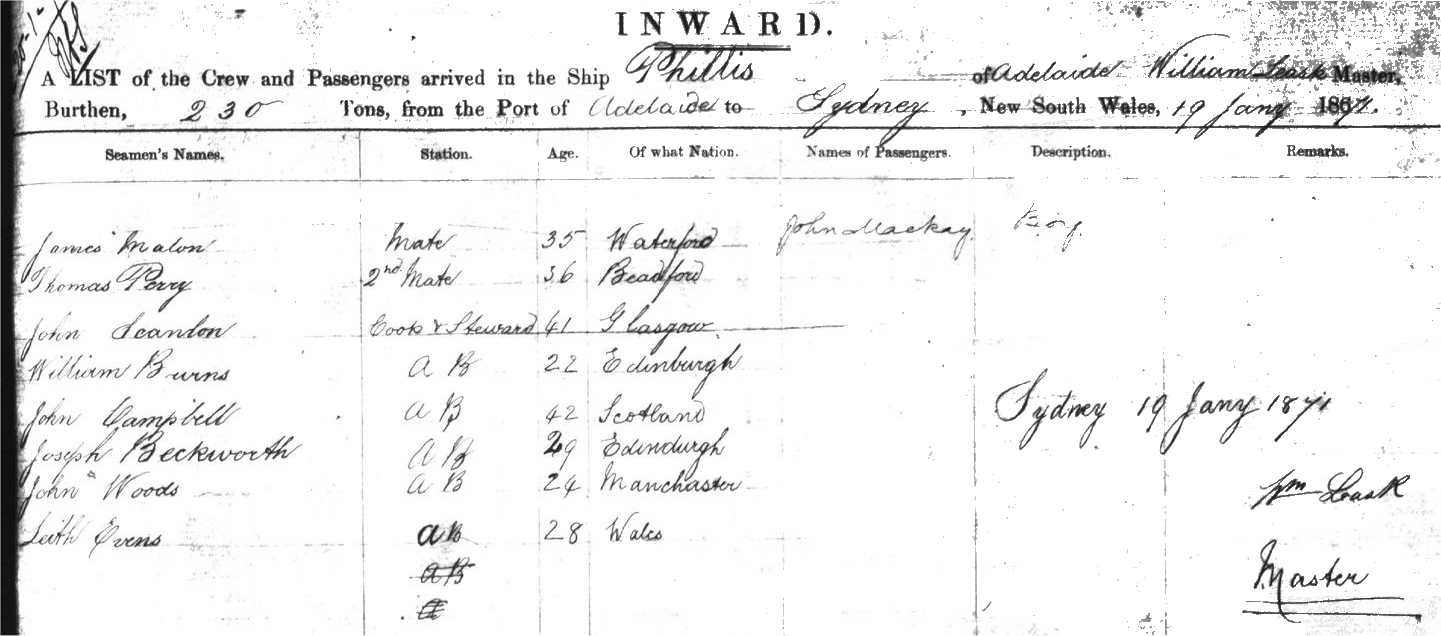 INWARD.
A LIST of the Crew and Passengers arrived in the Ship Phillis of Adelaide William Leask Master,
Burthen, 230 Tons, from the Port of Adelaide to Sydney, New South Wales, 19 Jany 1871.
Seamen's Names. Station. Age. Of what Nation. Names of Passengers. Description. Remarks.
James Malon Mate 35 Waterford John Mackay Boy
Thomas Perry 2nd Mate 36 Beadford
John Scandon Cook & Steward 41 Glasgow
William Burns A B 22 Edinburgh
John Campbell A B 42 Scotland Sydney 19 Jany 1871
Joseph Beckworth A B 29 Edindurgh
John Woods A B 24 Manchaster Wm Leask
Leith Evens A B 28 Wales
A B Master
A